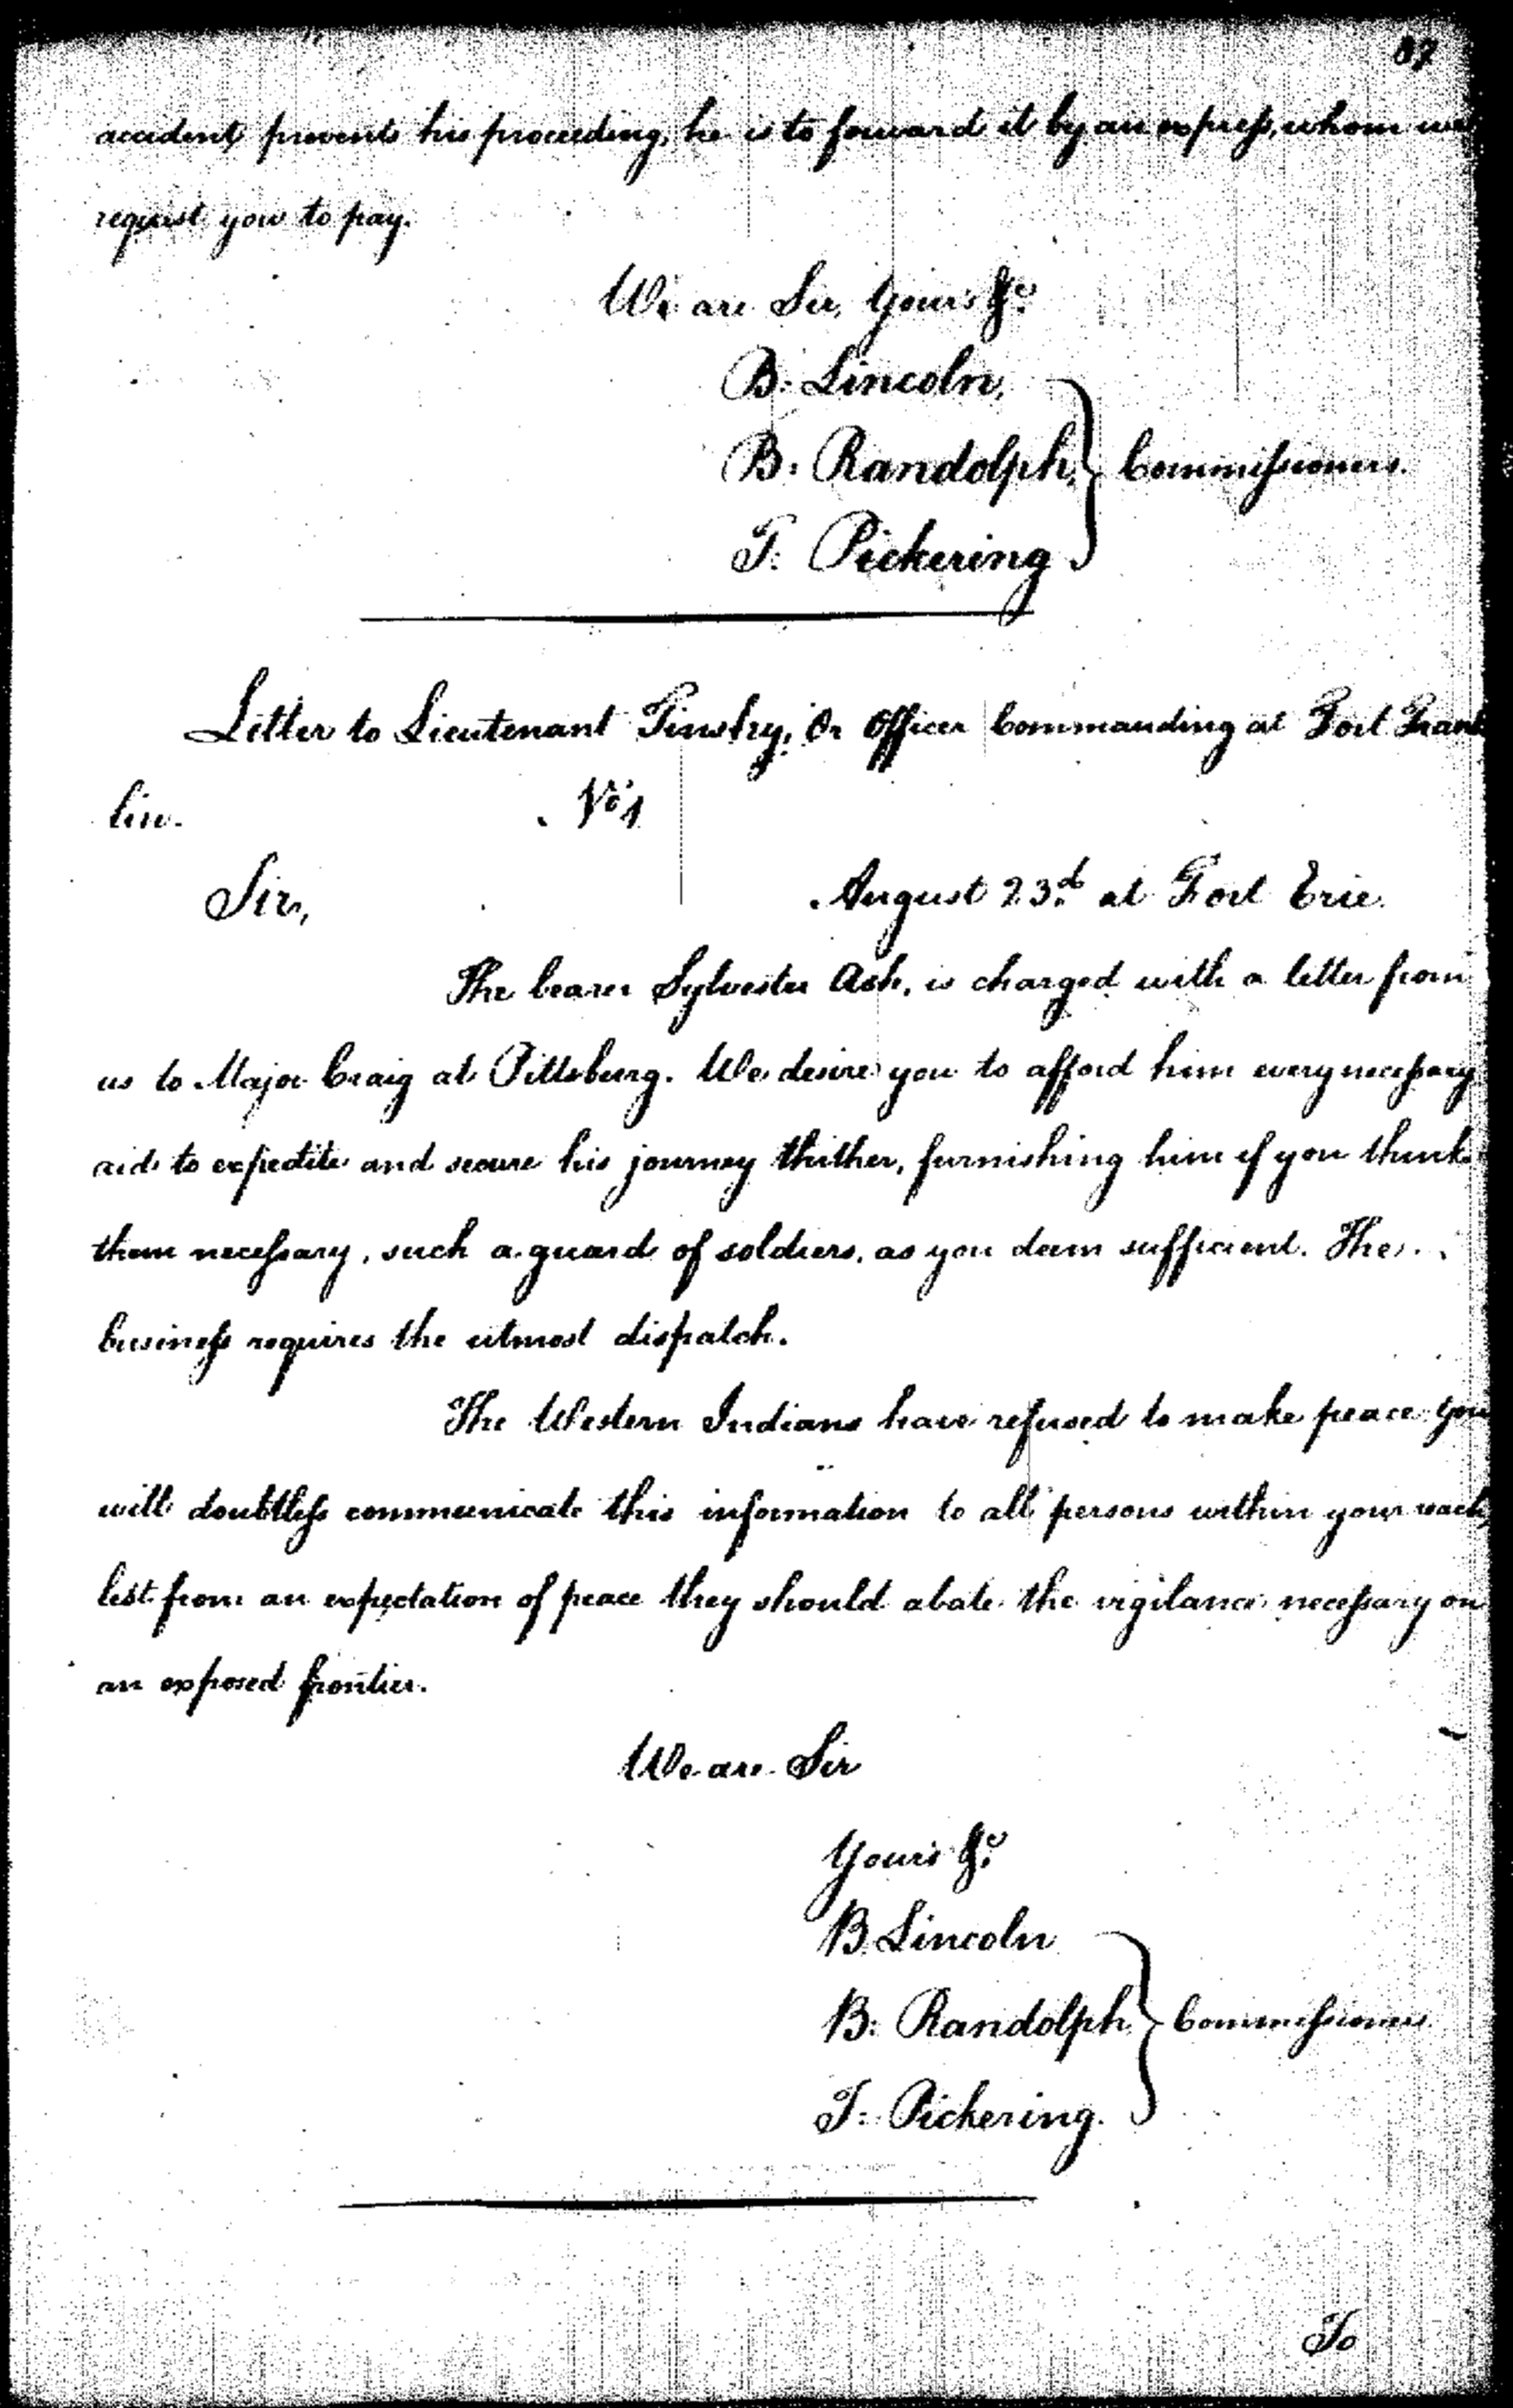 87
accident prevents his proceeding, he is to forward it by an express, whom we
request you to pay.
We are Sir, Yours &c.
B: Lincoln,
B: Randolph, } Commissioners.
T: Pickering
Letter to Lieutenant Or Officer Commanding at Fort Frank
lin.
No. 1
Sir, August 23d. at Fort Erie.
The bearer Sylvester Ash, is charged with a letter from
us to Major Craig at Pittsburg. We desire you to afford him every necessary
aid to expedite and secure his journey thither, furnishing him if you think
them necessary, such a guard of soldiers, as you deem sufficient. The
business requires the utmost dispatch.
The Western Indians have refused to make peace: you
will doubtless communicate this information to all persons within your reach,
lest from an expectation of peace they should abate the vigilance necessary on
an exposed frontier.
We are Sir
Yours &c.
B Lincoln
B: Randolph } Commissioners
T: Pickering.
To